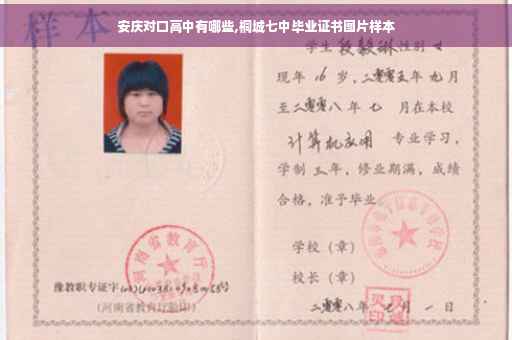 安庆对口高中有哪些,桐城七中毕业证书图片样本
样本
学生段毅琳性别女
现年16岁,二零零五年九月
至二零零八年七月在本校
计算机应用 专业学习,
学制三年,修业期满,成绩
合格,准予毕业。
学校(章)
校长(章)
二零零八年七月一日
河南省教育厅
豫教职专证字
(河南省教育厅验印)